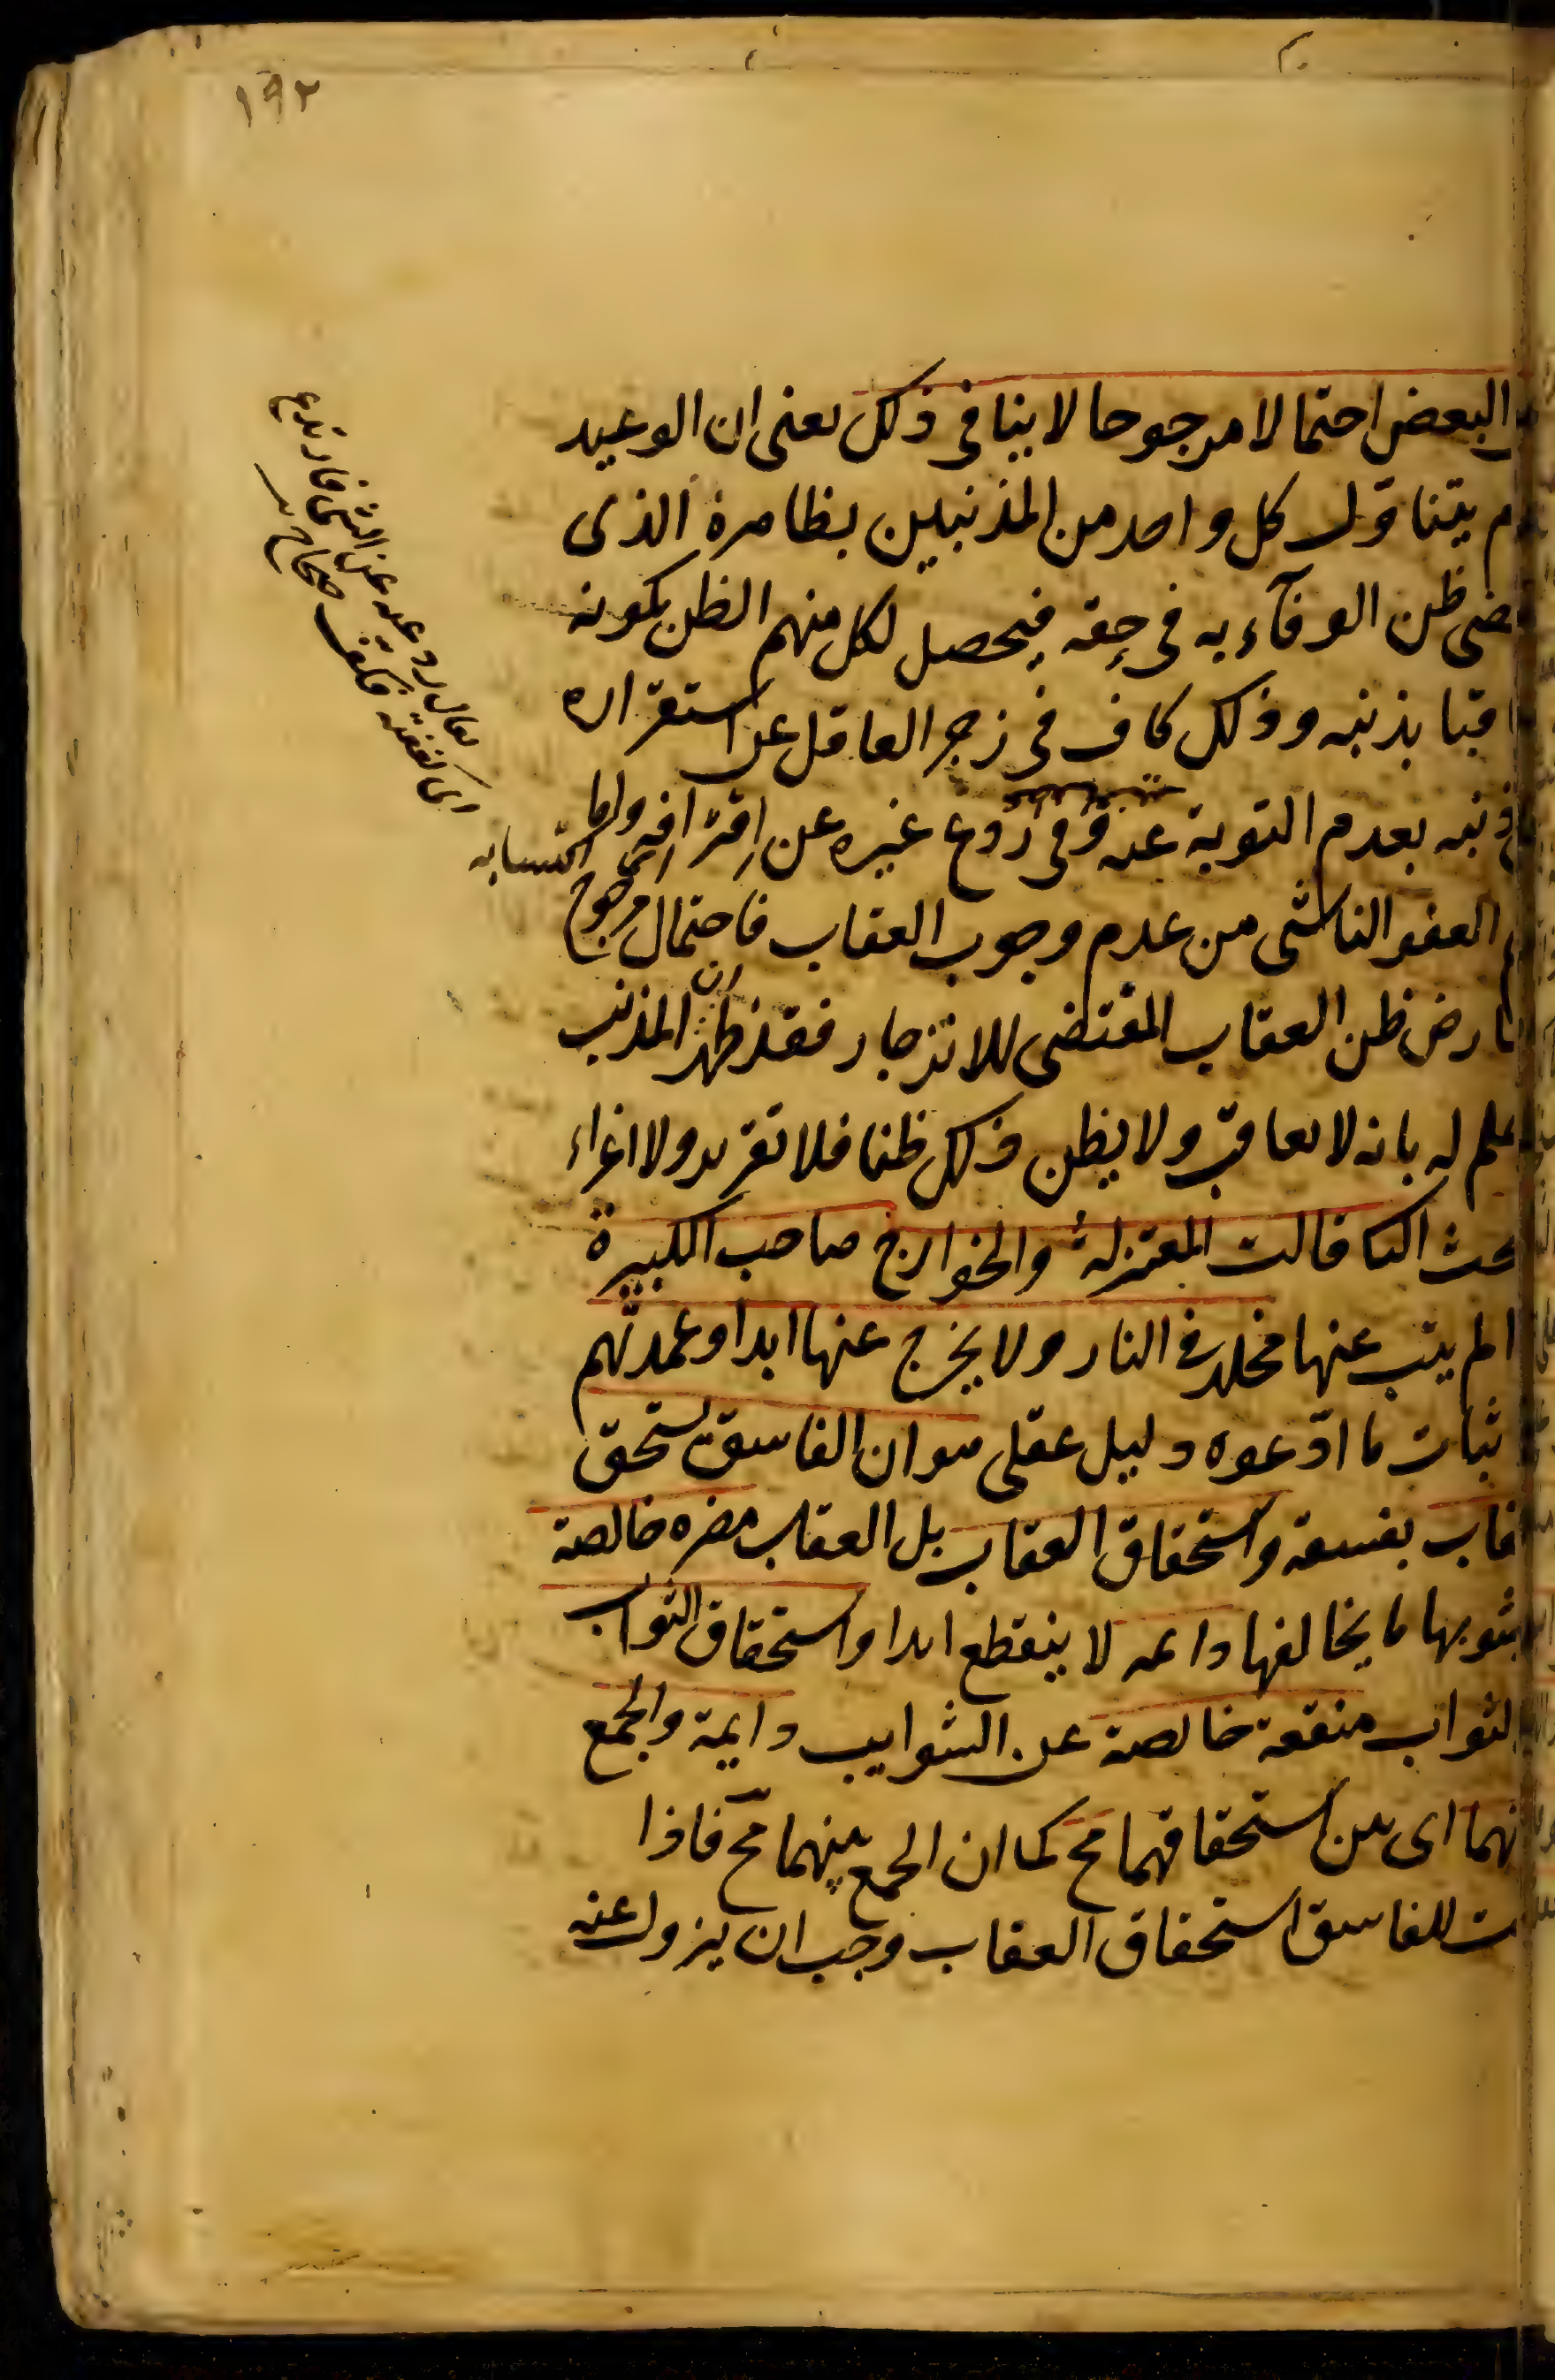 ١٩٢
البعض احتمالا مرجوحا لا ينافى ذلك يعنى ان الوعيد
يتناول كل واحد من المذنبين بظاهره الذى
ضى ظن الوفآء به فى حقه فيحصل لكل منهم الظن بكونه
اقبا بذنبه وذلك كاف فى زجر العاقل عن استقراره
ذنبه بعدم التوبة عنه وفى ردع غيره عن اقترافه واما
اى اكتسابه
العفو الناشى من عدم وجوب العقاب فاحتمال مرجوح
ارض ظن العقاب المقتضى للانزجار فقد ظهر ان المذنب
علم له بانه لا يعاقب ولا يظن ذلك ظنا فلا تقرير ولا اغراء
حث الثا قالت المعتزلة والخوارج صاحب الكبيرة
الم يتب عنها مخلد فى النار ولا يخرج عنها ابدا وعمدتهم
ثبات ما ادّعوه دليل عقلى هو ان الفاسق يستحق
قاب بفسقه واستحقاق العقاب بل العقاب مضره خالصة
يشوبها ما يخالفها دائمه لا ينقطع ابدا واستحقاق الثواب
لثواب منفعة خالصة عن الشوايب دايمة والجمع
نهما اى بين استحقاقهما مح كما ان الجمع بينهما مح فاذا
ت للفاسق استحقاق العقاب وجب ان يزول عنه
يقال ردعته عن الشئ فارتدع
اى كففته فكف صحاح